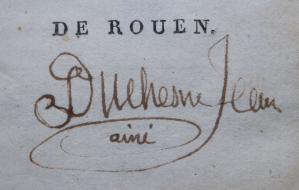 DE ROUEN.
Duchesne Jean
ainé